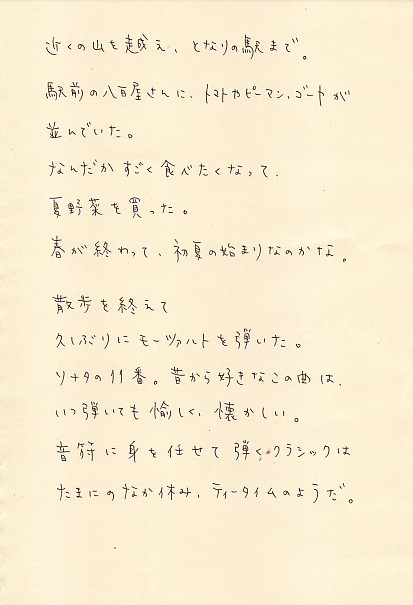 近くの山を越え、となりの駅まで。
駅前の八百屋さんに、トマトやピーマン、ゴーヤが
並んでいた。
なんだかすごく食べたくなって、
夏野菜を買った。
春が終わって、初夏の始まりなのかな。
散歩を終えて
久しぶりにモーツァルトを弾いた。
ソナタの11番。昔から好きなこの曲は、
いつ弾いても愉しく、懐かしい。
音符に身を任せて弾くクラシックは
たまにのなか休み、ティータイムのようだ。